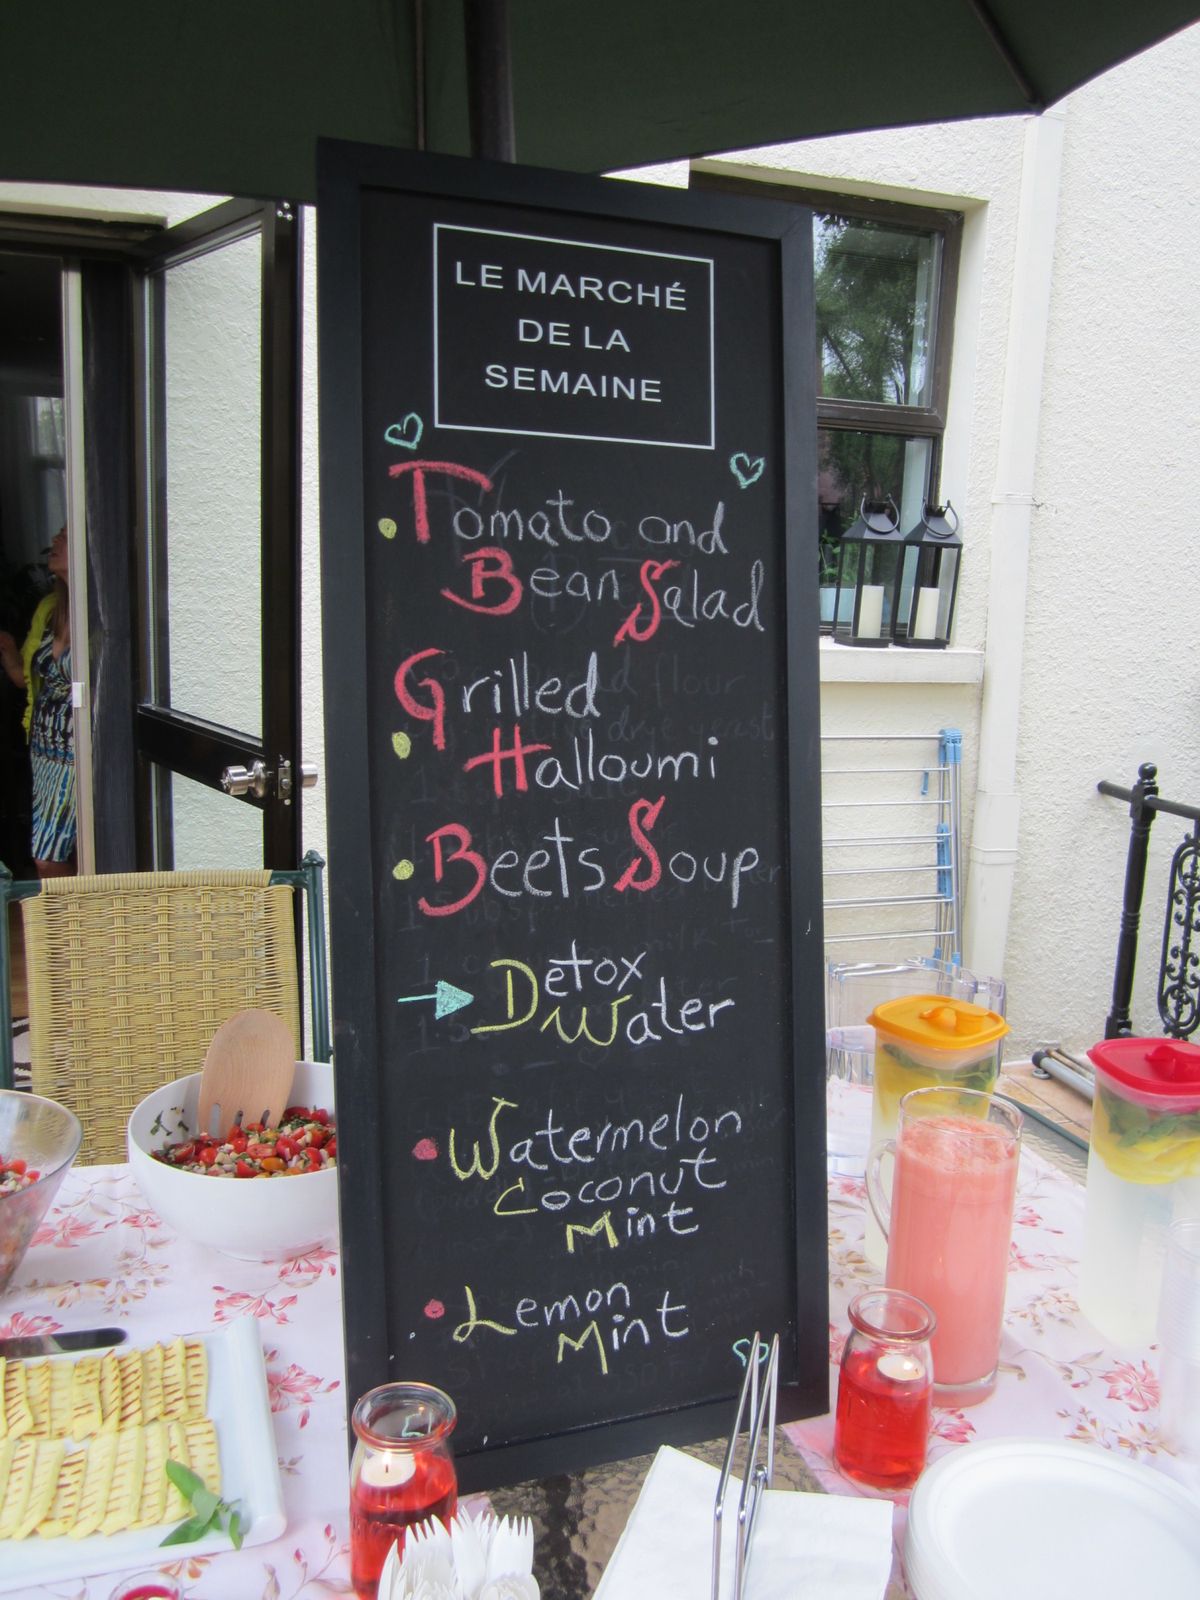 LE MARCHÉ
DE LA
SEMAINE
Tomato and
Bean Salad
Grilled
Halloumi
Beets Soup
Detox
Water
Watermelon
Coconut
Mint
Lemon
Mint